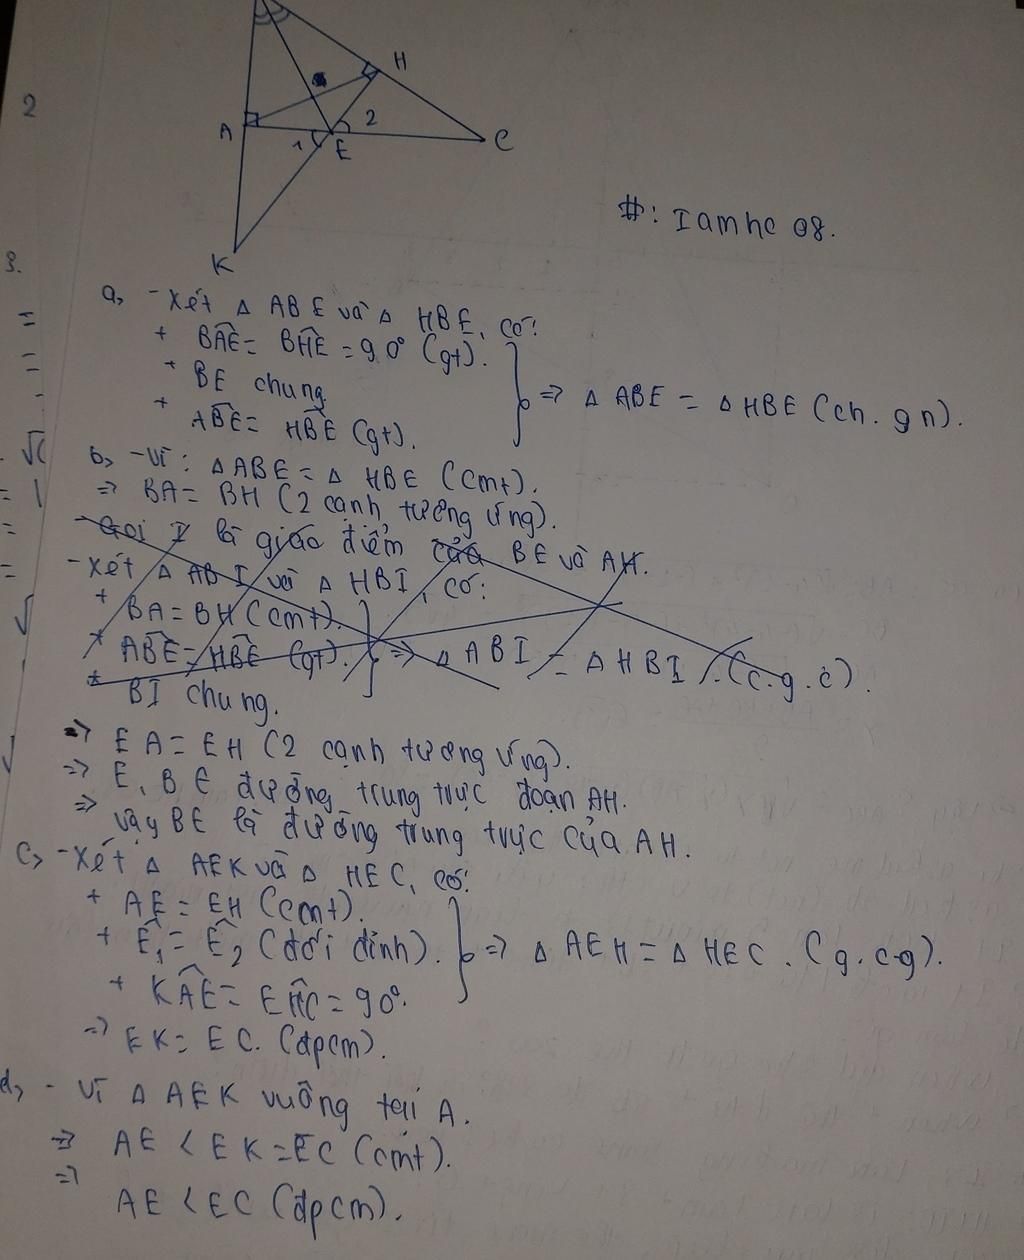 2
H
A
1
E
2
C
K
#: I am hc 08.
3.
a, - Xét Δ ABE và Δ HBE, có:
+ BÂE = BĤE = 90° (gt).
+ BE chung
+ AB̂E = HB̂E (gt).
=> Δ ABE = Δ HBE (ch. gn).
b, - Vì: Δ ABE = Δ HBE (cmt).
=> BA = BH (2 cạnh tương ứng).
- Gọi I là giao điểm của BE và AH.
- Xét Δ ABI và Δ HBI, có:
+ BA = BH (cmt).
+ AB̂E = HB̂E (gt).
+ BI chung.
=> Δ ABI = Δ HBI. (c.g.c).
=> EA = EH (2 cạnh tương ứng).
=> E, B ∈ đường trung trực đoạn AH.
=> Vậy BE là đường trung trực của AH.
c, - Xét Δ AEK và Δ HEC, có:
+ AE = EH (cmt).
+ Ê1 = Ê2 (đối đỉnh).
+ KÂE = EĤC = 90°.
=> Δ AEH = Δ HEC. (g.c-g).
=> EK = EC. (đpcm).
d, - Vì Δ AEK vuông tại A.
=> AE < EK = EC (cmt).
=>
AE < EC (đpcm).